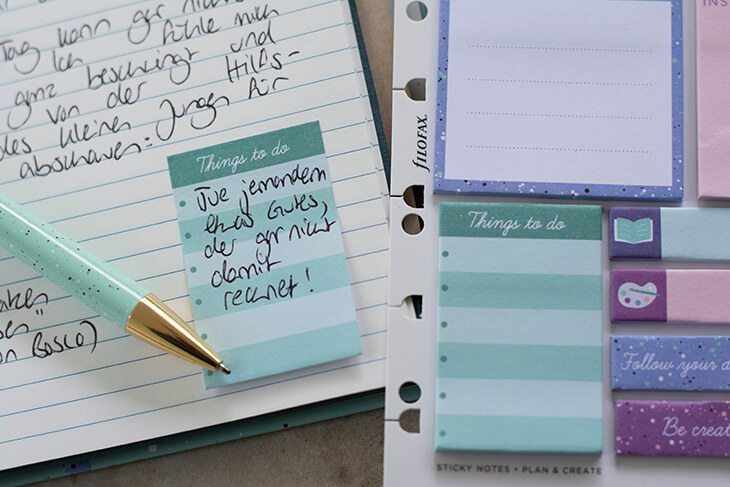 Tag kann gar nicht
Ich fühle mich
ganz beschwingt und
von der Hilfs-
des kleinen Jungen für
abschauen.
Things to do
Tue jemandem
etwas Gutes,
der gar nicht
damit
rechnet!
Bosco)
filofax
INS
Things to do
Follow your d
Be creat
STICKY NOTES • PLAN & CREATE